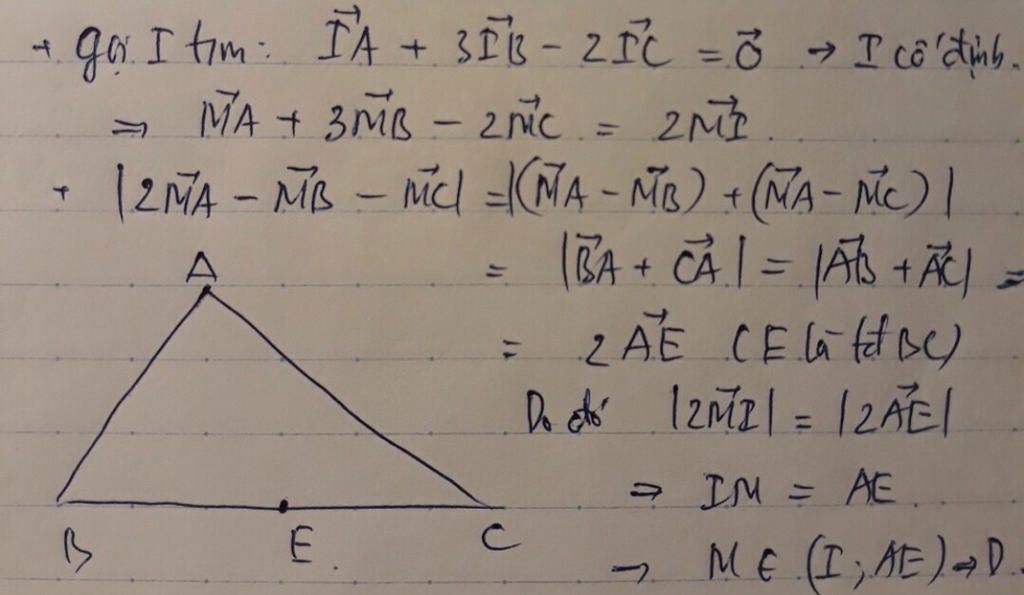 + Gọi I t/m: $\vec{IA} + 3\vec{IB} - 2\vec{IC} = \vec{0}$ → I cố định.
⇒ $\vec{MA} + 3\vec{MB} - 2\vec{MC} = 2\vec{MI}$.
+ $|2\vec{MA} - \vec{MB} - \vec{MC}| = |(\vec{MA} - \vec{MB}) + (\vec{MA} - \vec{MC})|$
A
= $|\vec{BA} + \vec{CA}| = |\vec{AB} + \vec{AC}|$ =
= $2\vec{AE}$ (E là tđ BC)
Do đó $|2\vec{MI}| = |2\vec{AE}|$
⇒ IM = AE
B E. C
→ M ∈ (I; AE) → D.